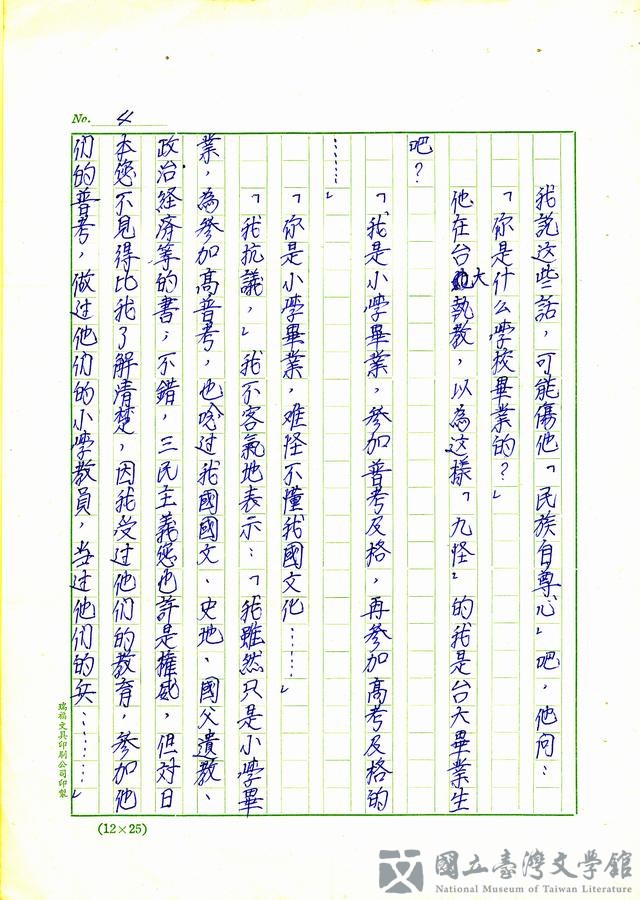 No. 4
我説这些話，可能傷他「民族自尊心」吧，他问：
「你是什么学校畢業的？」
他在台大執教，以為这樣「九怪」的我是台大畢業生
吧？
「我是小学畢業，參加普考及格，再參加高考及格的
……」
「你是小学畢業，难怪不懂我國文化……」
「我抗議，」我不客氣地表示：「我雖然只是小学畢
業，為參加高普考，也唸过我國國文、史地、國父遺教、
政治経済等的書；不錯，三民主義您也許是權威，但对日
本您不見得比我了解清楚，因我受过他们的教育，參加他
们的普考，做过他们的小学教員，当过他们的兵……」
瑞福文具印刷公司印製
(12×25)
國立臺灣文學館
National Museum of Taiwan Literature